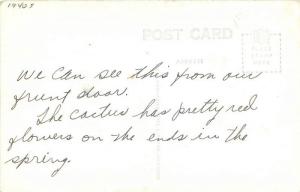 1940s
POST CARD
PLACE STAMP HERE
We can see this from our
frunt door.
The Cactus has pretty red
flowers on the ends in the
spring.